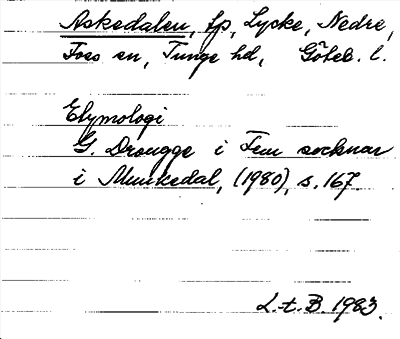 Askedalen, lp, Lycke, Nedre,
Foss sn, Tunge hd, Göteb. l.
Etymologi
G. Drougge i Fem socknar
i Munkedal, (1980), s. 167.
L.t.B. 1983.